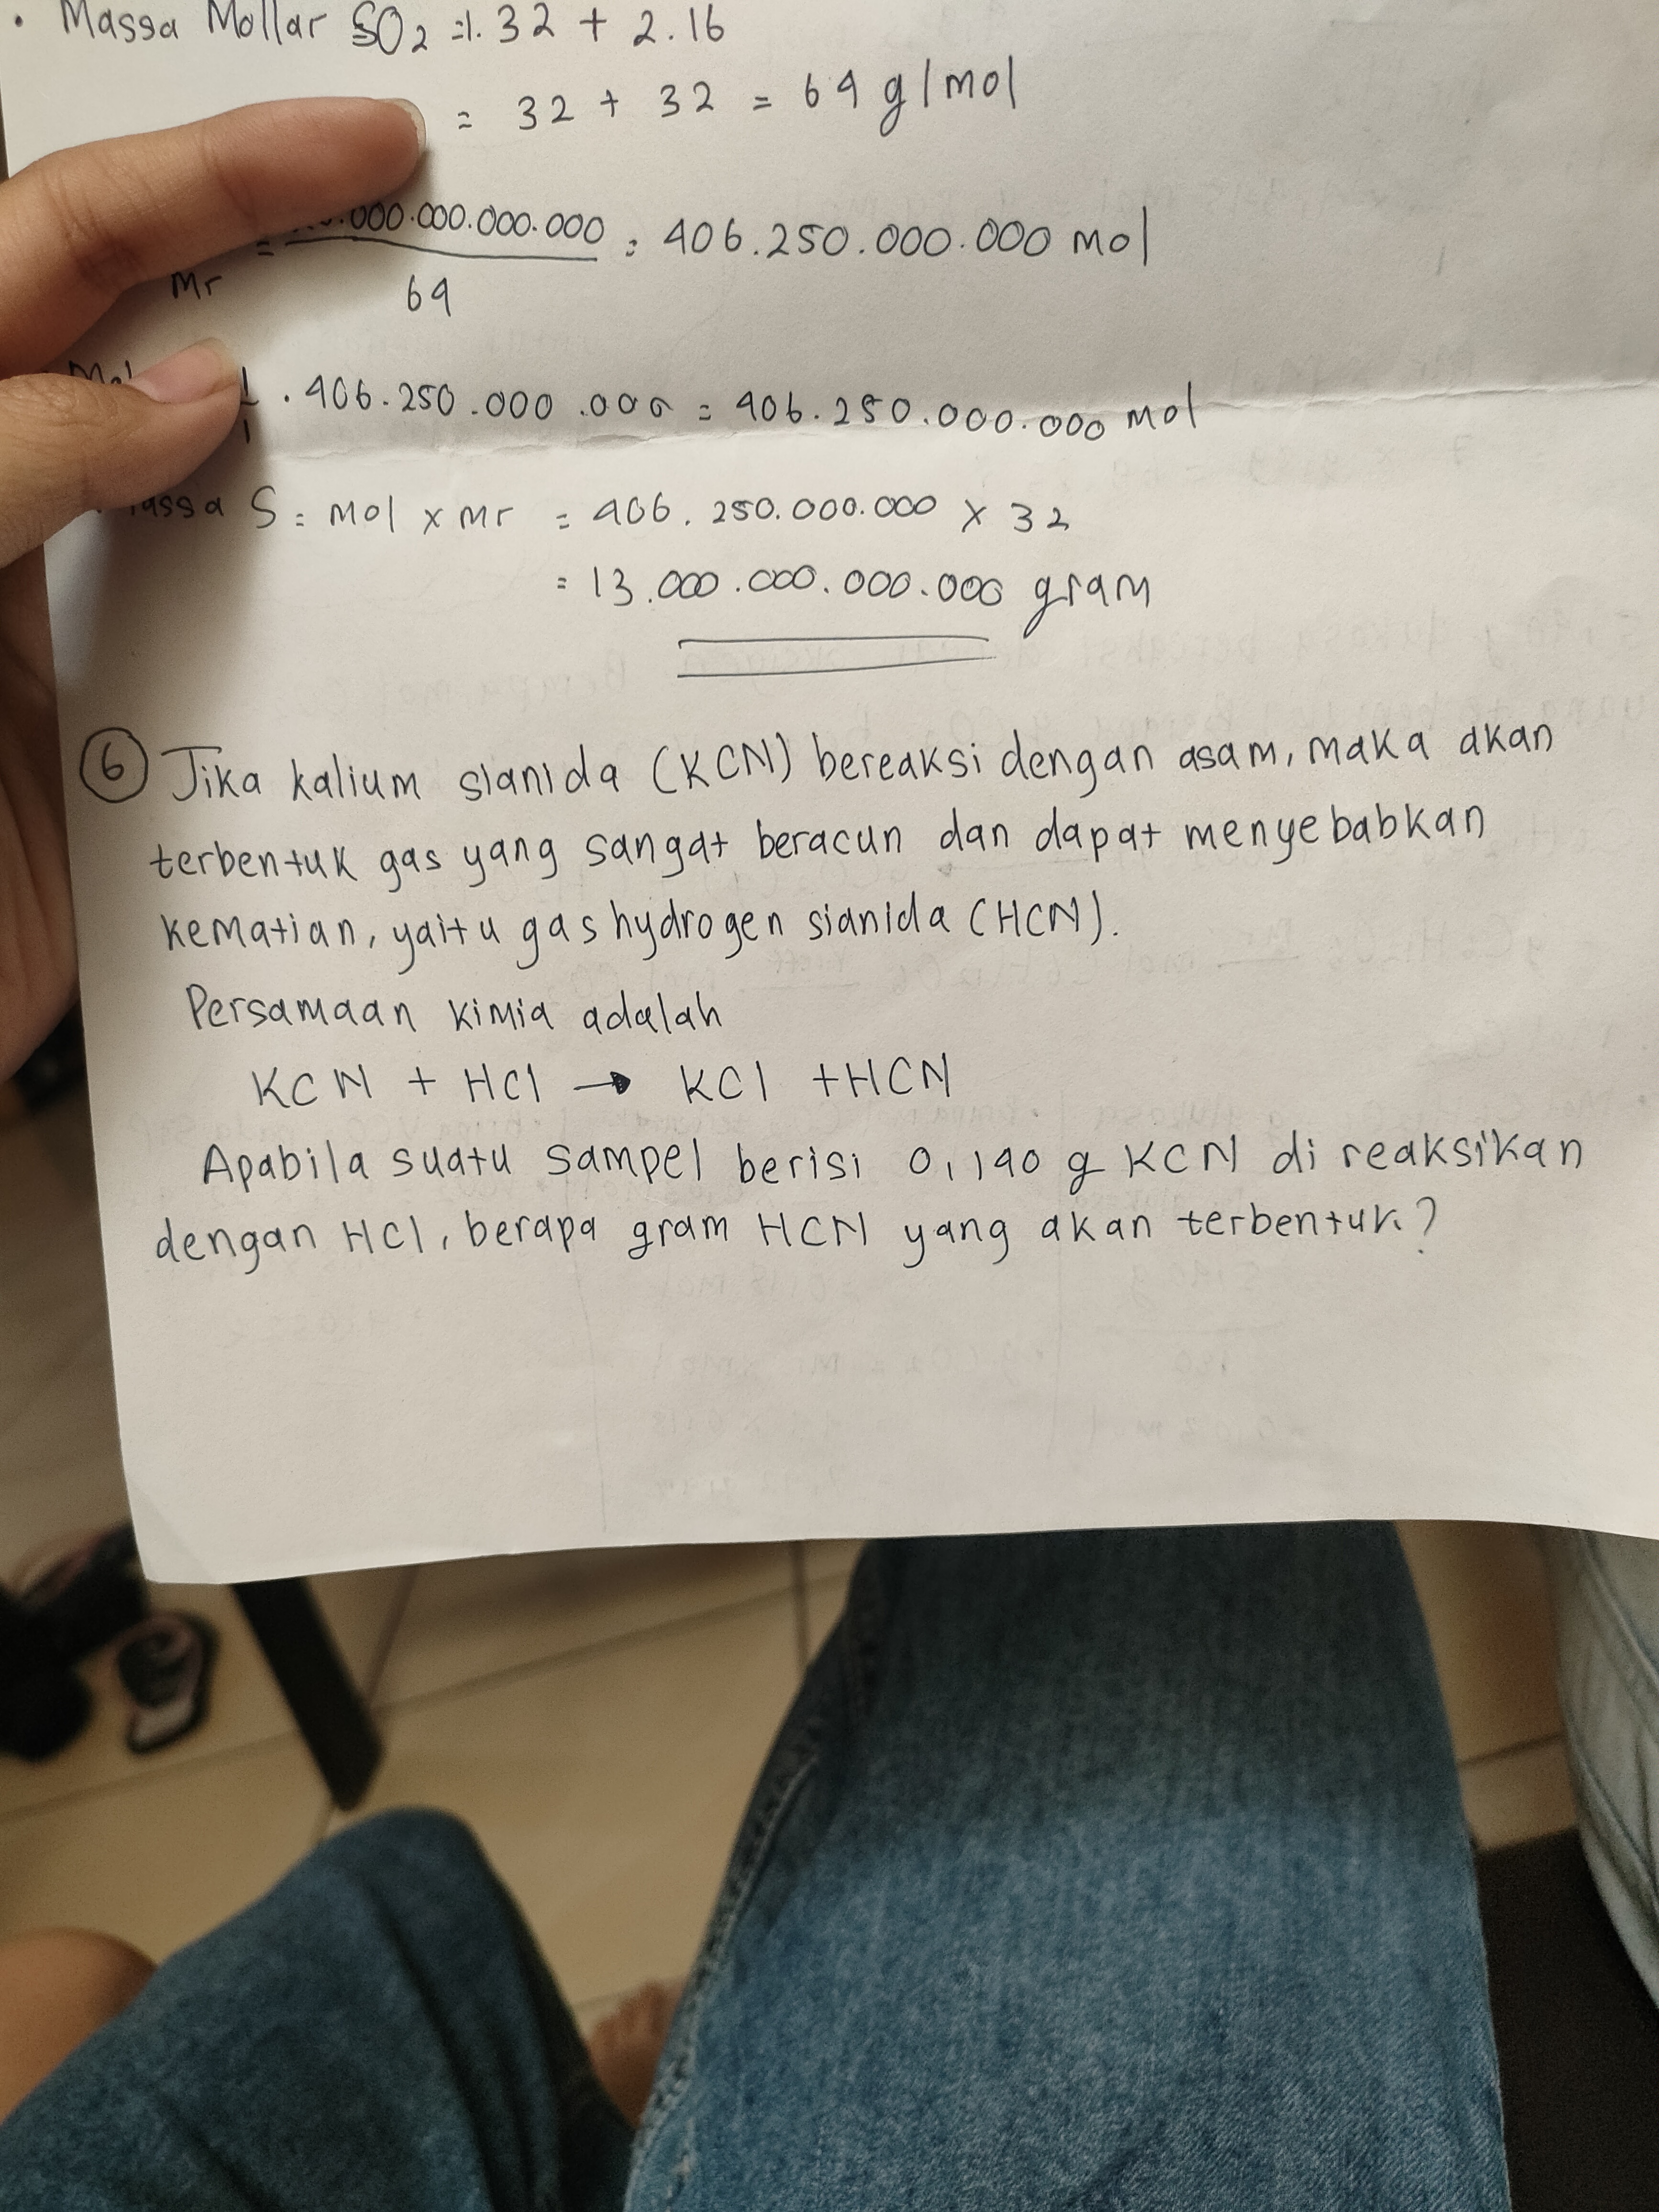 • Massa Mollar SO2 = 1. 32 + 2.16
= 32 + 32 = 64 g/mol
Mr = .000.000.000.000 / 64 = 406.250.000.000 mol
1/1 . 406.250.000.000 = 406.250.000.000 mol
massa S = mol x Mr = 406.250.000.000 x 32
= 13.000.000.000.000 gram
6 Jika kalium sianida (KCN) bereaksi dengan asam, maka akan
terbentuk gas yang sangat beracun dan dapat menyebabkan
kematian, yaitu gas hydrogen sianida (HCN).
Persamaan kimia adalah
KCN + HCl → KCl + HCN
Apabila suatu sampel berisi 0,140 g KCN di reaksikan
dengan HCl, berapa gram HCN yang akan terbentuk?